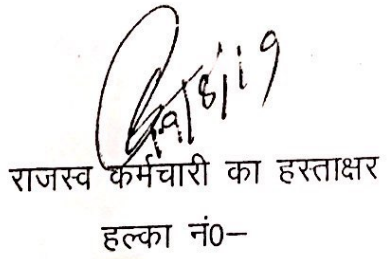 19/8/19
राजस्व कर्मचारी का हस्ताक्षर
हल्का नं0–